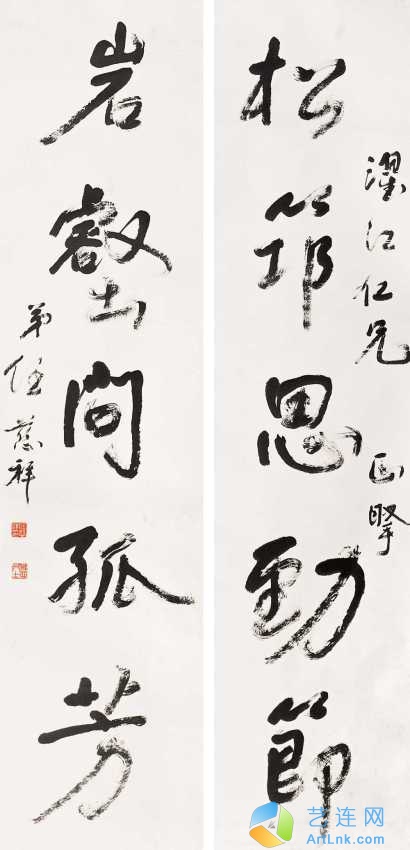 濯江仁兄正掔
松筇思勁節
岩壑問孤芳
弟任慈祥
艺连网
ArtLnk.com